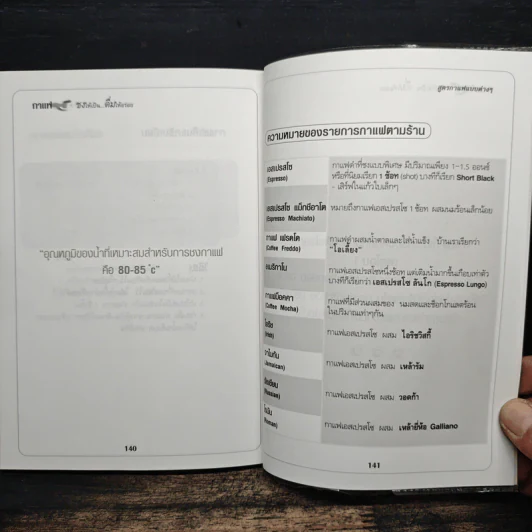 กาแฟ ชงให้เป็น...ดื่มให้อร่อย
"อุณหภูมิของน้ำที่เหมาะสมสำหรับการชงกาแฟ
คือ 80-85 °c"
140
สูตรกาแฟแบบต่างๆ
ความหมายของรายการกาแฟตามร้าน
เอสเปรสโซ
(Espresso)
กาแฟดำที่ชงแบบพิเศษ มีปริมาณเพียง 1-1.5 ออนซ์
หรือที่นิยมเรียก 1 ช็อท (shot) บางทีก็เรียก Short Black
- เสิร์ฟในแก้วใบเล็กๆ
เอสเปรสโซ แม็กชิอาโต
(Espresso Machiato)
หมายถึงกาแฟเอสเปรสโซ 1 ช็อท ผสมนมร้อนเล็กน้อย
กาแฟ เฟรดโด
(Coffee Freddo)
กาแฟดำผสมน้ำตาลและใส่น้ำแข็ง บ้านเราเรียกว่า
"โอเลี้ยง"
อเมริกาโน
กาแฟเอสเปรสโซหนึ่งช็อท แต่เติมน้ำมากขึ้นเกือบเท่าตัว
บางทีก็เรียกว่า เอสเปรสโซ ลันโก (Espresso Lungo)
กาแฟม็อคคา
(Coffee Mocha)
กาแฟที่มีส่วนผสมของ นมสดและช็อกโกแลตร้อน
ในปริมาณเท่าๆกัน
ไอริช
(Irish)
กาแฟเอสเปรสโซ ผสม ไอริชวิสกี้
จาไมกัน
(Jamaican)
กาแฟเอสเปรสโซ ผสม เหล้ารัม
รัสเซียน
(Russian)
กาแฟเอสเปรสโซ ผสม วอดก้า
โรมัน
(Roman)
กาแฟเอสเปรสโซ ผสม เหล้ายี่ห้อ Galliano
141